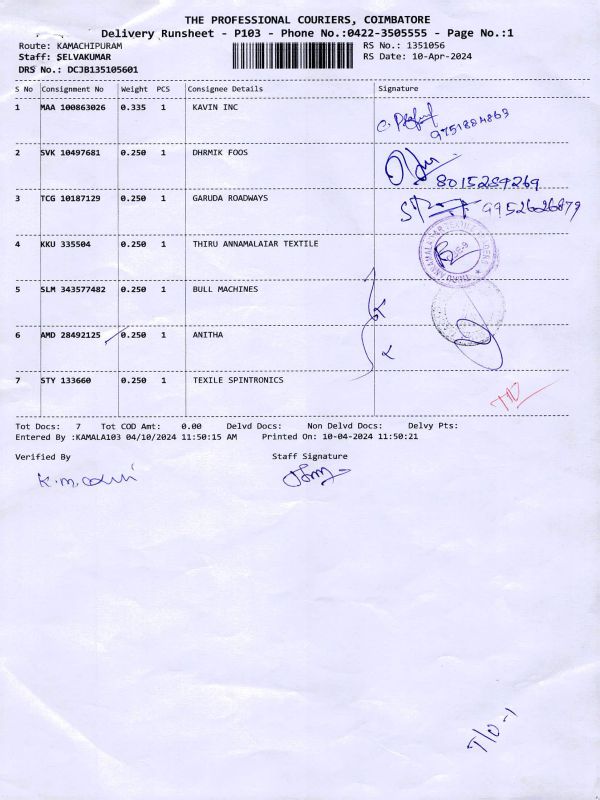 THE PROFESSIONAL COURIERS, COIMBATORE
Delivery Runsheet - P103 - Phone No.:0422-3505555 - Page No.:1
Route: KAMACHIPURAM RS No.: 1351056
Staff: SELVAKUMAR RS Date: 10-Apr-2024
DRS No.: DCJB135105601
S No Consignment No Weight PCS Consignee Details Signature
1 MAA 100863026 0.335 1 KAVIN INC
9751884863
2 SVK 10497681 0.250 1 DHRMIK FOOS
8015289269
3 TCG 10187129 0.250 1 GARUDA ROADWAYS
9952626879
4 KKU 335504 0.250 1 THIRU ANNAMALAIAR TEXTILE
5 SLM 343577482 0.250 1 BULL MACHINES
6 AMD 28492125 0.250 1 ANITHA
7 STY 133660 0.250 1 TEXILE SPINTRONICS
T/O
Tot Docs: 7 Tot COD Amt: 0.00 Delvd Docs: Non Delvd Docs: Delvy Pts:
Entered By :KAMALA103 04/10/2024 11:50:15 AM Printed On: 10-04-2024 11:50:21
Verified By Staff Signature
K.m.
T/O-1